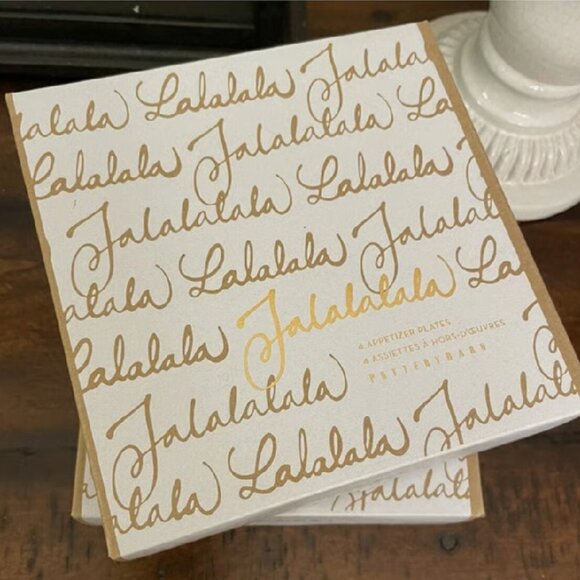 alala Lalalala Falala
Lalalala Falalalala La
Falalalala Lalalala
alala Lalalala Falala
Lalalala Falalalala La
4 APPETIZER PLATES
4 ASSIETTES À HORS-D'ŒUVRES
POTTERY BARN
Falalalala
alala Lalalala Falalala
Falalala